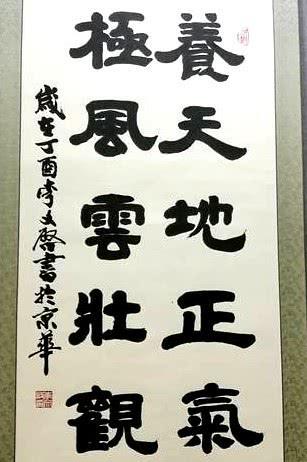 養天地正氣
極風雲壯觀
歲在丁酉李文啓書於京華